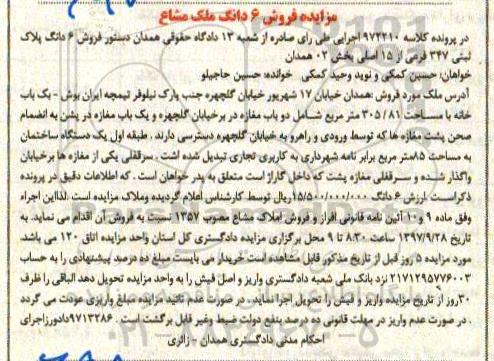 مزایده فروش ۶ دانگ ملک مشاع
در پرونده کلاسه ۹۷۲۲۱۰ اجرایی طی رای صادره از شعبه ۱۳ دادگاه حقوقی همدان دستور فروش ۶ دانگ پلاک
ثبتی ۳۴۷ فرعی از ۱۵ اصلی بخش ۰۲ همدان
خواهان: حسین کمکی و نوید وحید کمکی   خوانده: حسین حاجیلو
آدرس ملک مورد فروش :همدان خیابان ۱۷ شهریور خیابان گلچهره جنب پارک نیلوفر تیمچه ایران بوش - یک باب
خانه با مساحت ۳۰۵/۸۱ متر مربع شامل دو باب مغازه در برخیابان گلچهره و یک باب مغازه در پشن به انضمام
صحن پشت مغازه ها که توسط ورودی و راهرو به خیابان گلچهره دسترسی دارند . طبقه اول یک دستگاه ساختمان
به مساحت ۸۵متر مربع برابر نامه شهرداری به کاربری تجاری تبدیل شده اشت . سرقفلی یکی از مغازه ها برخیابان
واگذار شده و سرقفلی مغازه پشت که داخل گاراژ است متعلق به پدر خواهان است . که اطلاعات دقیق در پرونده
ذکراست .ارزش ۶ دانگ ۱۵/۵۰۰/۰۰۰/۰۰۰ریال توسط کارشناس اعلام گردیده وملاک مزایده است .لذااین اجراء
وفق ماده ۹ و ۱۰ آئین نامه قانونی افراز و فروش املاک مشاع مصوب ۱۳۵۷ نسبت به فروش آن اقدام می نماید. به
تاریخ ۱۳۹۷/۹/۲۸ ساعت ۸:۳۰ تا ۹ محل برگزاری مزایده دادگستری کل استان واحد مزایده اتاق ۱۲۰ می باشد.
مورد مزایده ۵ روز قبل از تاریخ مذکور قابل مشاهده است خریدار می بایست مبلغ ده درصد پیشنهادی را به حساب
۲۱۷۱۲۹۵۷۷۶۰۰۳ نزد بانک ملی شعبه دادگستری واریز و اصل فیش را به واحد مزایده تحویل دهد الباقی را ظرف
۳۰روز از تاریخ مزایده واریز و فیش را تحویل اجرا نماید . در صورت عدم تائید مزایده مبلغ واریزی عودت می گردد
. در صورت عدم واریز در مهلت قانونی ده درصد بنفع دولت ضبط وغیر قابل برگشت است . ۹۷۱۳۲۸۶دادورزاجرای
احکام مدنی دادگستری همدان - زائری